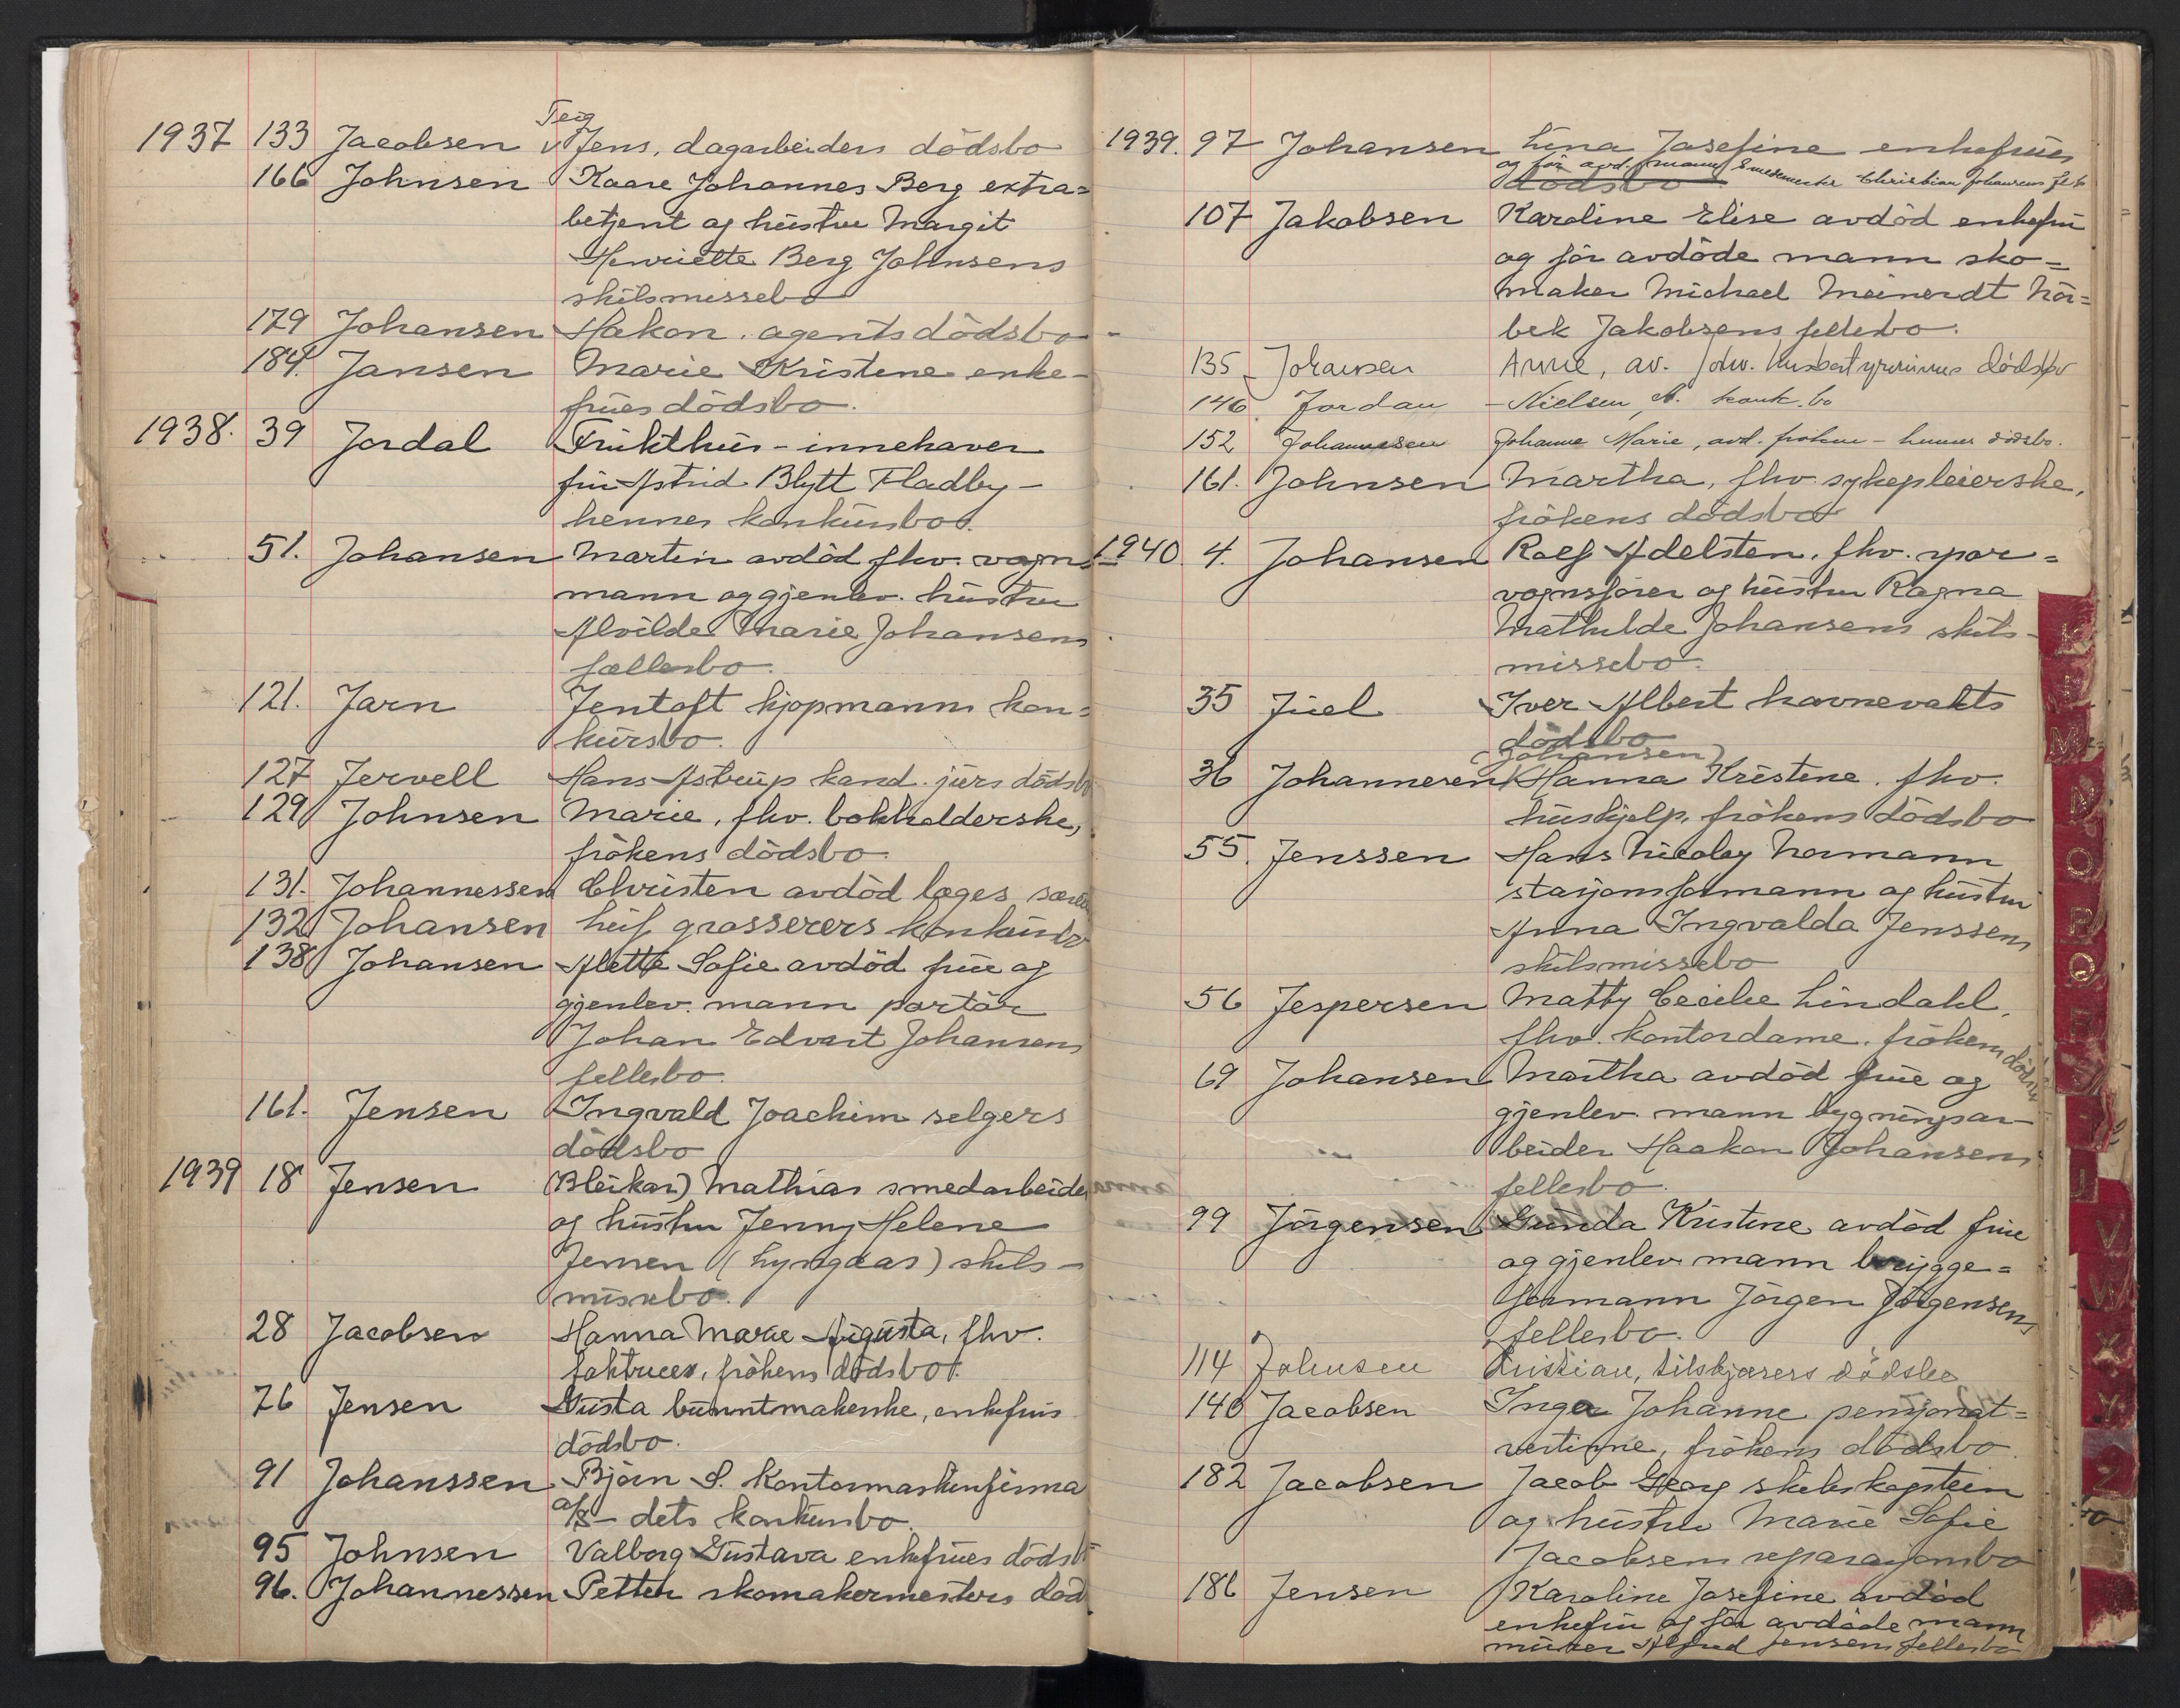 Teig
1937 133 Jacobsen v Jens, dagarbeiders dödsbo
166 Johnsen Kaare Johannes Berg extra=
betjent og hustru Margit
Henriette Berg Johnsens
skilsmissebo
179 Johansen Hakon, agents dödsbo
184. Jansen Marie Kristine enke-
frues dödsbo.
1938. 39 Jordal Frukthus - innehaver
fru Astrid Blytt Fladby -
hennes konkursbo.
51. Johansen Martin avdöd fhv. vogn-
mann og gjenlev. hustru
Alvilde Marie Johansens
fællesbo.
121. Jarn Jentoft kjøpmanns kon=
kursbo.
127 Jervell Hans Astrup kand. jurs dödsb
129 Johnsen Marie, fhv. bokholderske,
frökens dödsbo.
131. Johannessen Christen avdöd læges
132 Johansen Leif grosserers konkursbo
138 Johansen Alette Sofie avdöd frue og
gjenlev. mann portör
Johan Edvart Johansens
fellesbo.
161. Jensen Ingvald Joachim selgers
dödsbo
1939 18 Jensen (Bleikar) Mathias smedarbeider
og hustru Jenny Helene
Jensen (Lyngaas) skils-
missebo.
28 Jacobsen Hanna Marie Augusta, fhv.
frökens dödsbo.
76 Jensen Gusta buntmakerske, enkefrus
dödsbo.
91 Johanssen Björn S. Kontormaskinfirma
a/s - dets konkursbo.
95 Johnsen Valborg Gustava enkefrues dödsb
96. Johannessen Petter skomakermesters död
1939. 97 Johansen Lina Josefine enkefrues
og för avd. mann Smedmester Christian Johansens feb
dödsbo
107 Jakobsen Karoline Elise avdöd enkefru
og för avdöde mann sko=
maker Michael Meinerdt Nör=
bek Jakobsens fellesbo.
135 Johansen Anne, av. husbestyrerinnes dödsbo
146 Jordan - Nielsen, A. konk.bo
152 Johannesen Johanne Marie, avd. fröken - hennes dödsbo.
161. Johnsen Martha, fhv. sykepleierske,
frökens dödsbo
1940. 4. Johansen Rolf Adelsten, fhv. spor=
vognsförer og hustru Ragna
Mathilde Johansens skils-
missebo.
35 Juel Iver Albert havnevakts
dödsbo
(Johansen)
36 Johannesen Hanna Kristine, fhv.
hushjelp, frökens dödsbo
55 Jenssen Hans Nicolay Normann
stasjonsformann og hustru
Anna Ingvalda Jenssens
skilsmissebo
56 Jespersen Matty Cecilie Lindahl,
fhv. kontordame, frökens dödsbo
69 Johansen Martha avdöd frue og
gjenlev. mann bygningsar-
beider Haakon Johansens
fellesbo.
99 Jörgensen Gunda Kristine avdöd frue
og gjenlev. mann brygge=
formann Jörgen Jörgensens
fellesbo.
114 Johnsen Kristian, tilskjærers dödsbo
140 Jacobsen Inga Johanne pensjonat=
vertinne, frökens dödsbo.
182 Jacobsen Jacob Georg skibskaptein
og hustru Marie Sofie
Jacobsens separasjonsbo
186 Jensen Karoline Josefine avdöd
enkefru og för avdöde mann
murer Alfred Jensens fellesbo
K
L
M
N
O
P
Q
R
S
T
U
V
W
X
Y
Z